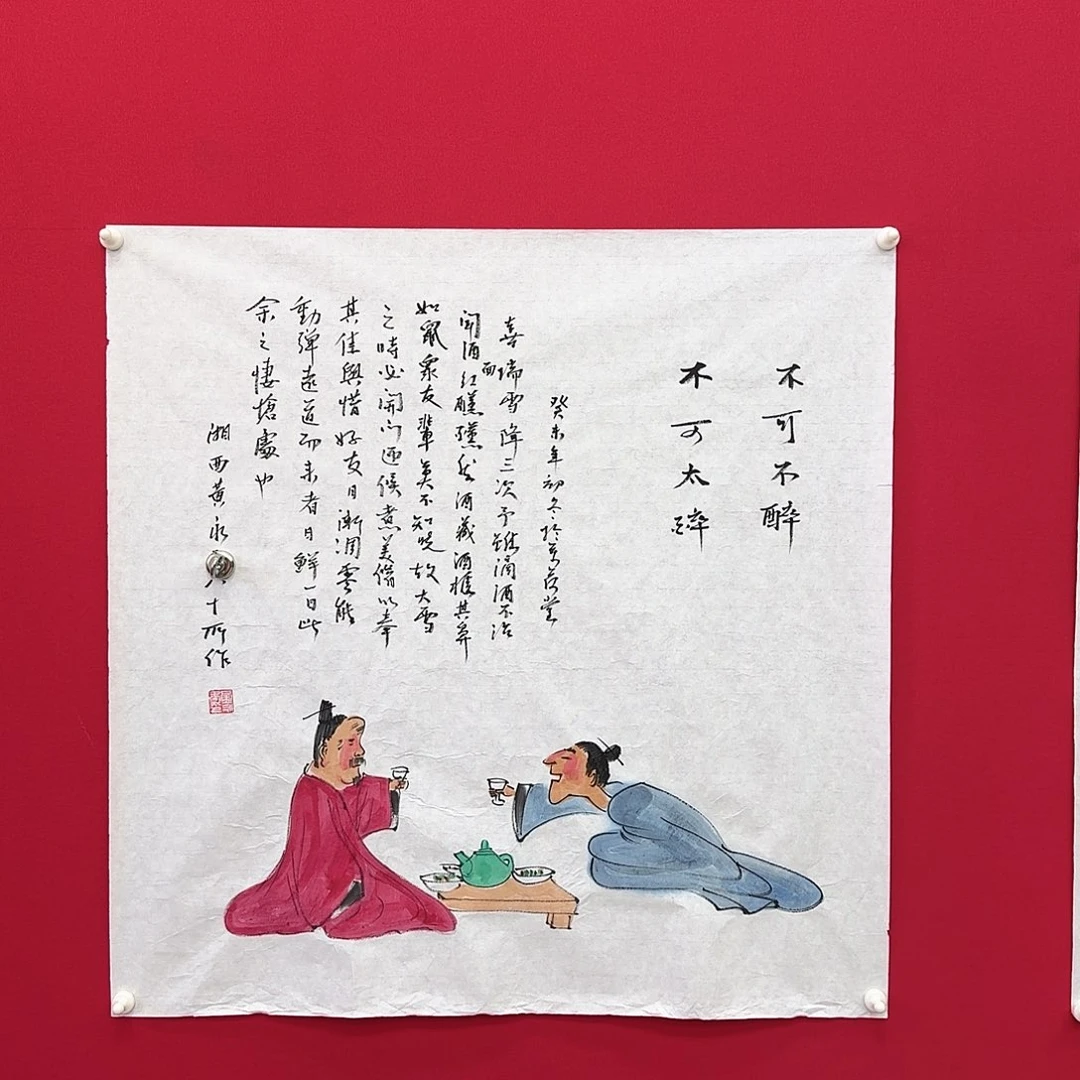 不可不醉
不可太醉
癸未年初冬於萬荷堂
喜瑞雪降三次予雖滴酒不沾
聞酒而紅醺醺然酒藏酒櫃其年
如鼠衆友輩莫不知晓故大雪
之時必開門迎候煮美饌以奉
其佳興惜好友日漸凋零能
動彈遠道而来者日鮮一日此
余之悽愴處也
湘西黃永八十所作